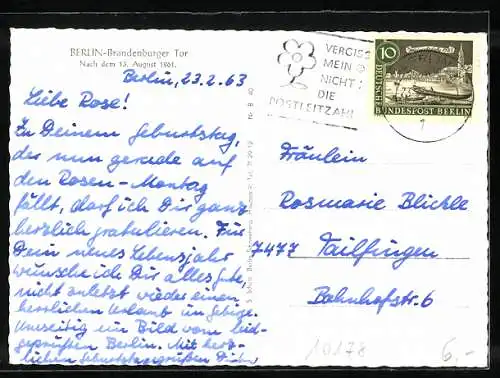 BERLIN-Brandenburger Tor
Nach dem 13. August 1961.
Berlin, 23.2.63
Liebe Rose!
Zu Deinem Geburtstag,
der nun gerade auf
den Rosen-Montag
fällt, darf ich Dir ganz
herzlich gratulieren. Für
Dein neues Lebensjahr
wünsche ich Dir alles Gute,
nicht zuletzt wieder einen
herrlichen Urlaub im Gebirge.
Umseitig ein Bild vom leid-
geprüften Berlin. Mit herz-
lichen Geburtstagsgrüßen
VERGISS
MEIN
NICHT
DIE
POSTLEITZAHL
10
DEUTSCHE
BUNDESPOST BERLIN
1
Fräulein
Rosmarie Blickle
7477 Tailfingen
Bahnhofstr. 6
10178
6.-